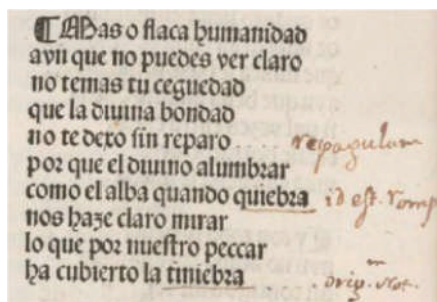 ¶ Mas o flaca humanidad
avn que no puedes ver claro
no temas tu ceguedad
que la diuina bondad
no te dexo sin reparo repagulam
por que el diuino alumbrar
como el alba quando quiebra id est. romp
nos haze claro mirar
lo que por nuestro peccar
ha cubierto la tiniebra